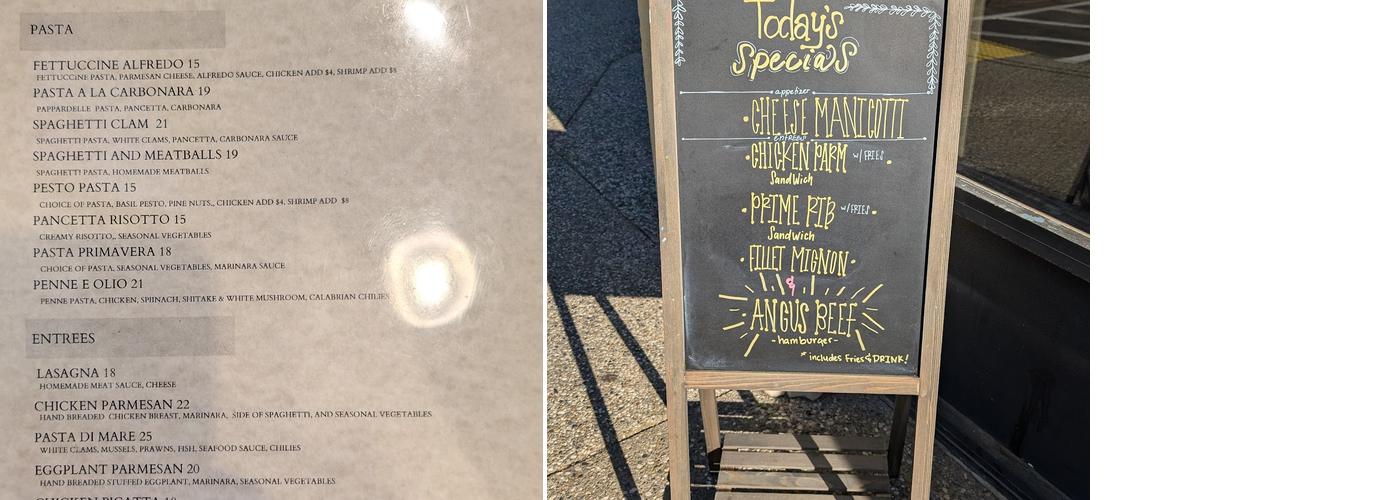 PASTA
FETTUCCINE ALFREDO 15
FETTUCCINE PASTA, PARMESAN CHEESE, ALFREDO SAUCE, CHICKEN ADD $4, SHRIMP ADD $8
PASTA A LA CARBONARA 19
PAPPARDELLE PASTA, PANCETTA, CARBONARA
SPAGHETTI CLAM 21
SPAGHETTI PASTA, WHITE CLAMS, PANCETTA, CARBONARA SAUCE
SPAGHETTI AND MEATBALLS 19
SPAGHETTI PASTA, HOMEMADE MEATBALLS
PESTO PASTA 15
CHOICE OF PASTA, BASIL PESTO, PINE NUTS,, CHICKEN ADD $4, SHRIMP ADD $8
PANCETTA RISOTTO 15
CREAMY RISOTTO,, SEASONAL VEGETABLES
PASTA PRIMAVERA 18
CHOICE OF PASTA, SEASONAL VEGETABLES, MARINARA SAUCE
PENNE E OLIO 21
PENNE PASTA, CHICKEN, SPIINACH, SHITAKE & WHITE MUSHROOM, CALABRIAN CHILIES
ENTREES
LASAGNA 18
HOMEMADE MEAT SAUCE, CHEESE
CHICKEN PARMESAN 22
HAND BREADED CHICKEN BREAST, MARINARA, SIDE OF SPAGHETTI, AND SEASONAL VEGETABLES
PASTA DI MARE 25
WHITE CLAMS, MUSSELS, PRAWNS, FISH, SEAFOOD SAUCE, CHILIES
EGGPLANT PARMESAN 20
HAND BREADED STUFFED EGGPLANT, MARINARA, SEASONAL VEGETABLES
CHICKEN PICATTA
Today's
Specials
appetizer
CHEESE MANICOTTI
entrees
CHICKEN PARM w/ FRIES
Sandwich
PRIME RIB w/ FRIES
Sandwich
FILLET MIGNON
&
ANGUS BEEF
-hamburger-
*includes Fries & DRINK!